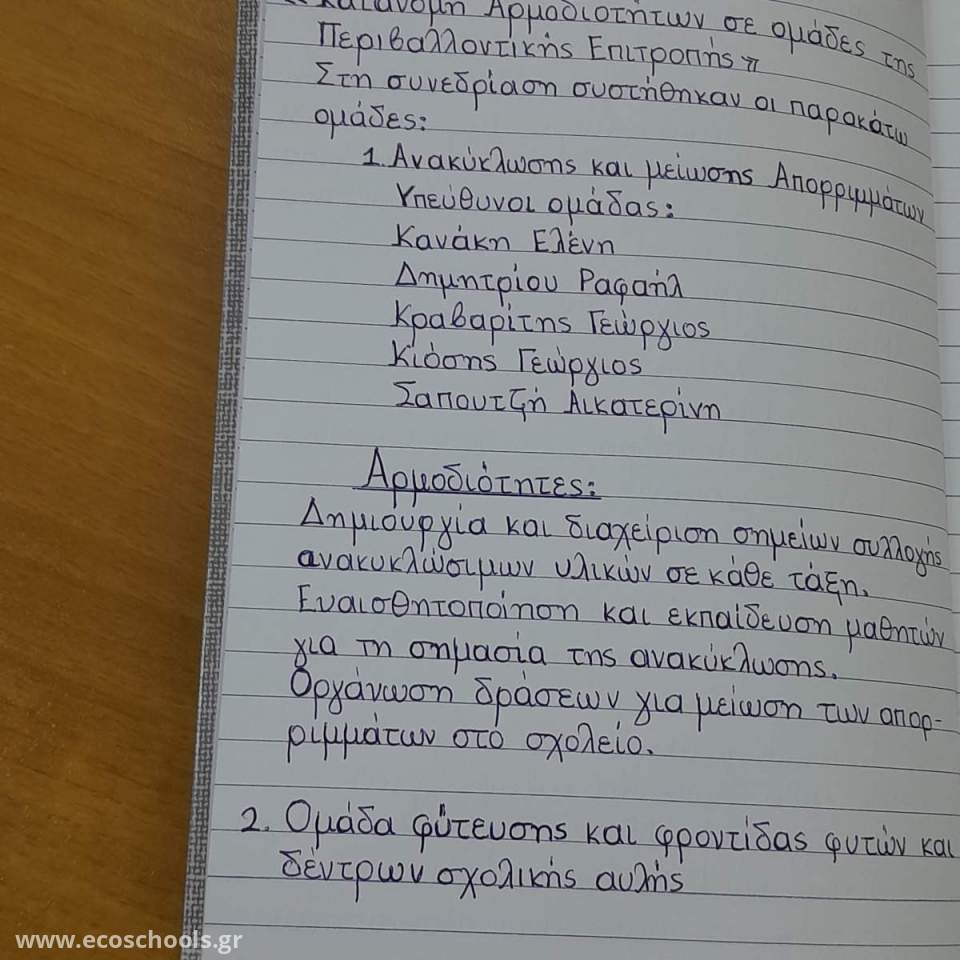 « Κατανομή Αρμοδιοτήτων σε ομάδες της
Περιβαλλοντικής Επιτροπής »
Στη συνεδρίαση συστήθηκαν οι παρακάτω
ομάδες:
1. Ανακύκλωσης και μείωσης Απορριμμάτων
Υπεύθυνοι ομάδας:
Κανάκη Ελένη
Δημητρίου Ραφαήλ
Κραβαρίτης Γεώργιος
Κιόσης Γεώργιος
Σαπουτζή Αικατερίνη
Αρμοδιότητες:
Δημιουργία και διαχείριση σημείων συλλογής
ανακυκλώσιμων υλικών σε κάθε τάξη.
Ευαισθητοποίηση και εκπαίδευση μαθητών
για τη σημασία της ανακύκλωσης.
Οργάνωση δράσεων για μείωση των απορ-
ριμμάτων στο σχολείο.
2. Ομάδα φύτευσης και φροντίδας φυτών και
δέντρων σχολικής αυλής
www.ecoschools.gr